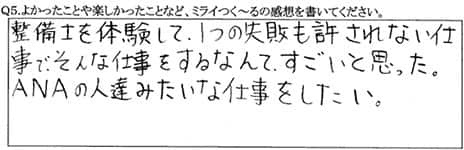 Q5.よかったことや楽しかったことなど、ミライつく～るの感想を書いてください。
整備士を体験して、1つの失敗も許されない仕
事で、そんな仕事をするなんて、すごいと思った。
ANAの人達みたいな仕事をしたい。